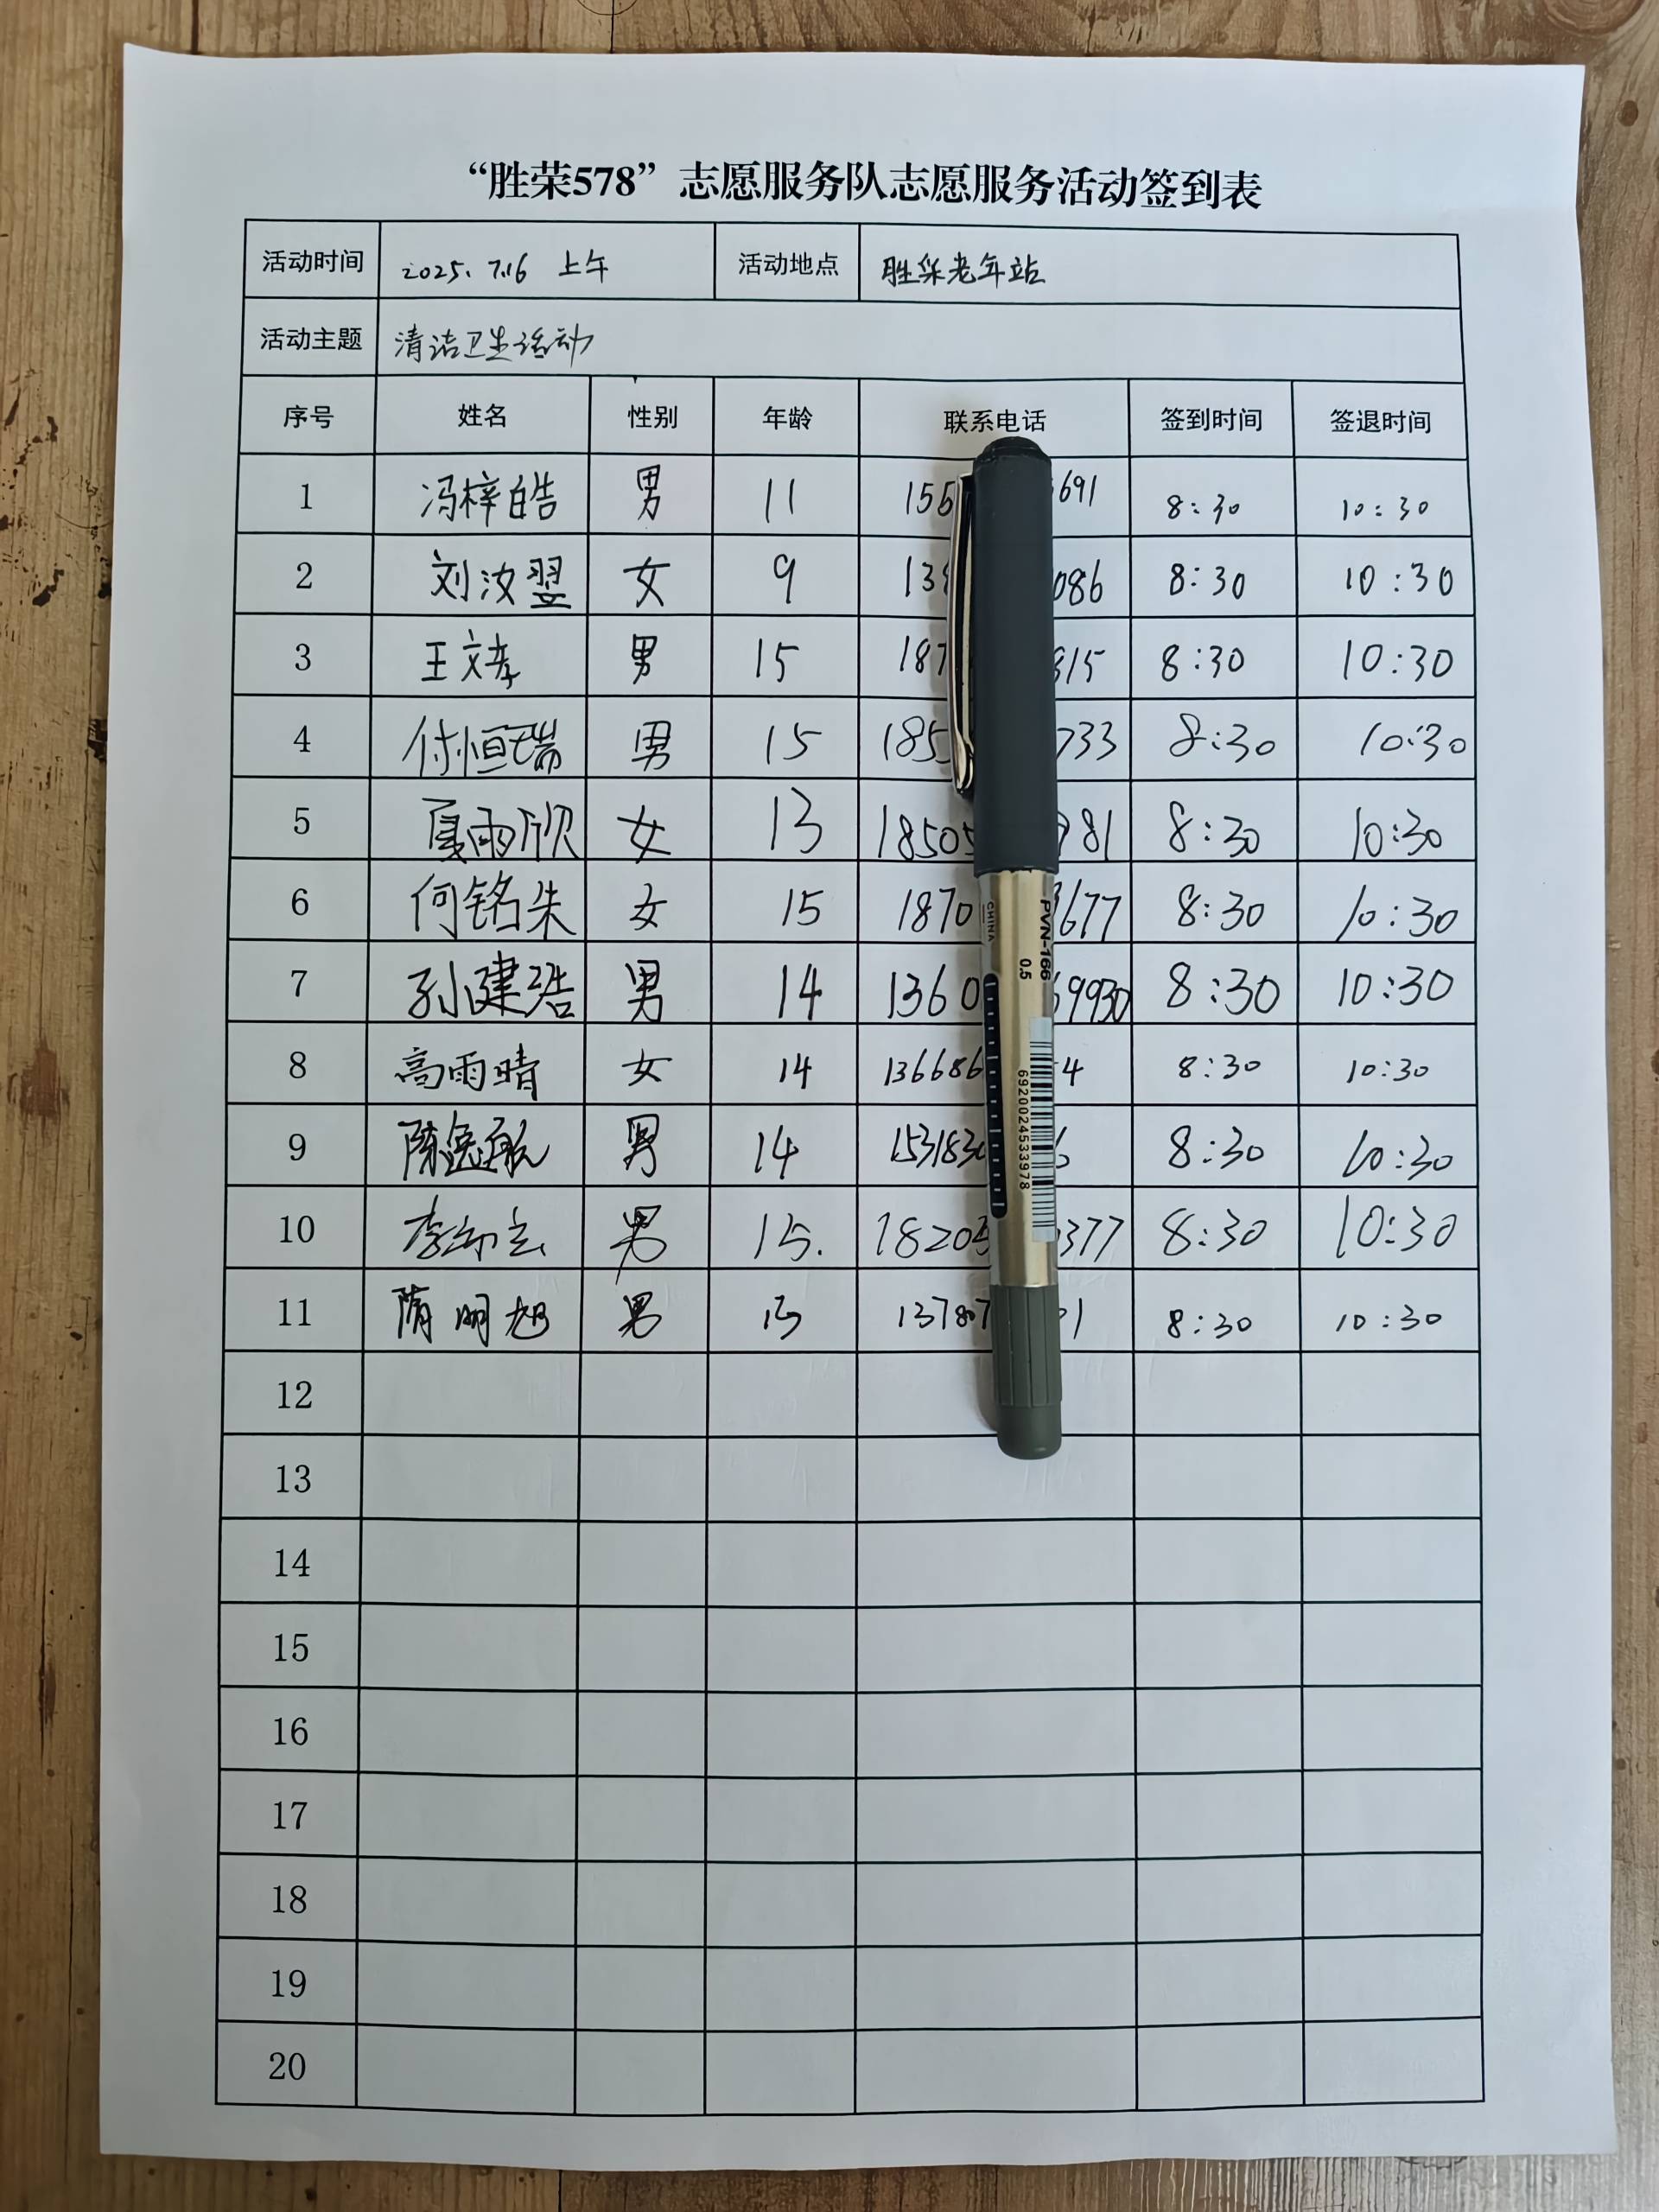 “胜荣578”志愿服务队志愿服务活动签到表
活动时间 2025.7.16 上午 活动地点 胜采老年站
活动主题 清洁卫生活动
序号 姓名 性别 年龄 联系电话 签到时间 签退时间
1 冯梓皓 男 11 155 691 8:30 10:30
2 刘汝翌 女 9 13 086 8:30 10:30
3 王文孝 男 15 187 815 8:30 10:30
4 付恒瑞 男 15 185 733 8:30 10:30
5 夏雨欣 女 13 18505 781 8:30 10:30
6 何铭朱 女 15 1870 3677 8:30 10:30
7 孙建浩 男 14 1360 69930 8:30 10:30
8 高雨晴 女 14 136686 4 8:30 10:30
9 陈逸航 男 14 1531830 6 8:30 10:30
10 李 男 15. 18205 377 8:30 10:30
11 隋明旭 男 137807 1 8:30 10:30
12
13
14
15
16
17
18
19
20
PVN-166 0.5
CHINA
6920024533978